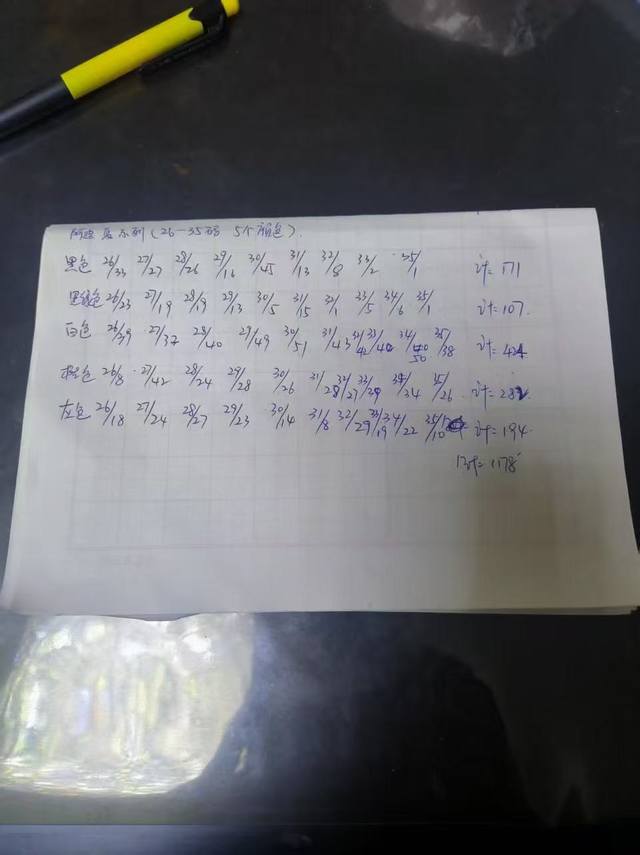 系列(26-35码 5个颜色).
黑色 26/33 27/27 28/26 29/16 30/45 31/13 32/8 33/2 35/1 计=171
黑绿色 26/23 27/19 28/19 29/13 30/5 31/15 32/1 33/5 34/6 35/1 计=107.
白色 26/39 27/37 28/40 29/49 30/51 31/43 32/42 33/ 34/50 35/38 计=424
色 26/8 27/42 28/24 29/28 30/26 31/28 32/27 33/39 34/34 35/26 计=282
灰色 26/18 27/24 28/27 29/23 30/14 31/8 32/29 33/19 34/22 35/10 计=194.
计=1178